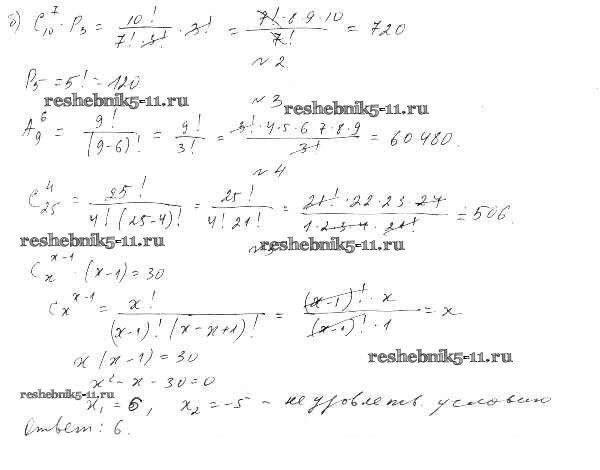 б) C₁₀⁷ · P₃ = 10! / 7! · 3! · 3! = 7! · 8 · 9 · 10 / 7! = 720
№ 2
P₅ = 5! = 120
reshebnik5-11.ru
№ 3
reshebnik5-11.ru
A₉⁶ = 9! / (9-6)! = 9! / 3! = 3! · 4 · 5 · 6 7 · 8 · 9 / 3! = 60480.
№ 4
C₂₅⁴ = 25! / 4! (25-4)! = 25! / 4! 21! = 21! · 22 · 23 · 24 / 1 · 2 · 3 · 4 · 21! = 506.
reshebnik5-11.ru
reshebnik5-11.ru
Cₓˣ⁻¹ · (x-1) = 30
Cₓˣ⁻¹ = x! / (x-1)! (x-x+1)! = (x-1)! · x / (x-1)! · 1 = x
x (x-1) = 30
reshebnik5-11.ru
x² - x - 30 = 0
reshebnik5-11.ru
x₁ = 6, x₂ = -5 - не удовлетв. условию
Ответ: 6.